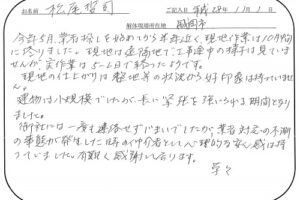 お名前 松尾 哲司 ご記入日 平成 28年 11月 1日
解体現場御住所 盛岡市
今年5月、業者探しを始めから半年近く、現地作業は10月旬
に終りました。現地は遠隔地で工事中の様子は見ていま
せんが、実作業は5〜6日で終ったようです。
現地の仕上がりは整地等の状況から好印象は持っていません。
建物は小規模でしたが、長い緊張を強いられる期間となり
ました。
御社には一度も連絡せずじまいでしたが、業者対応の不測
の事態が発生した時の仲介者として心理的な安心感は持
っていました。有難く感謝しております。
草々